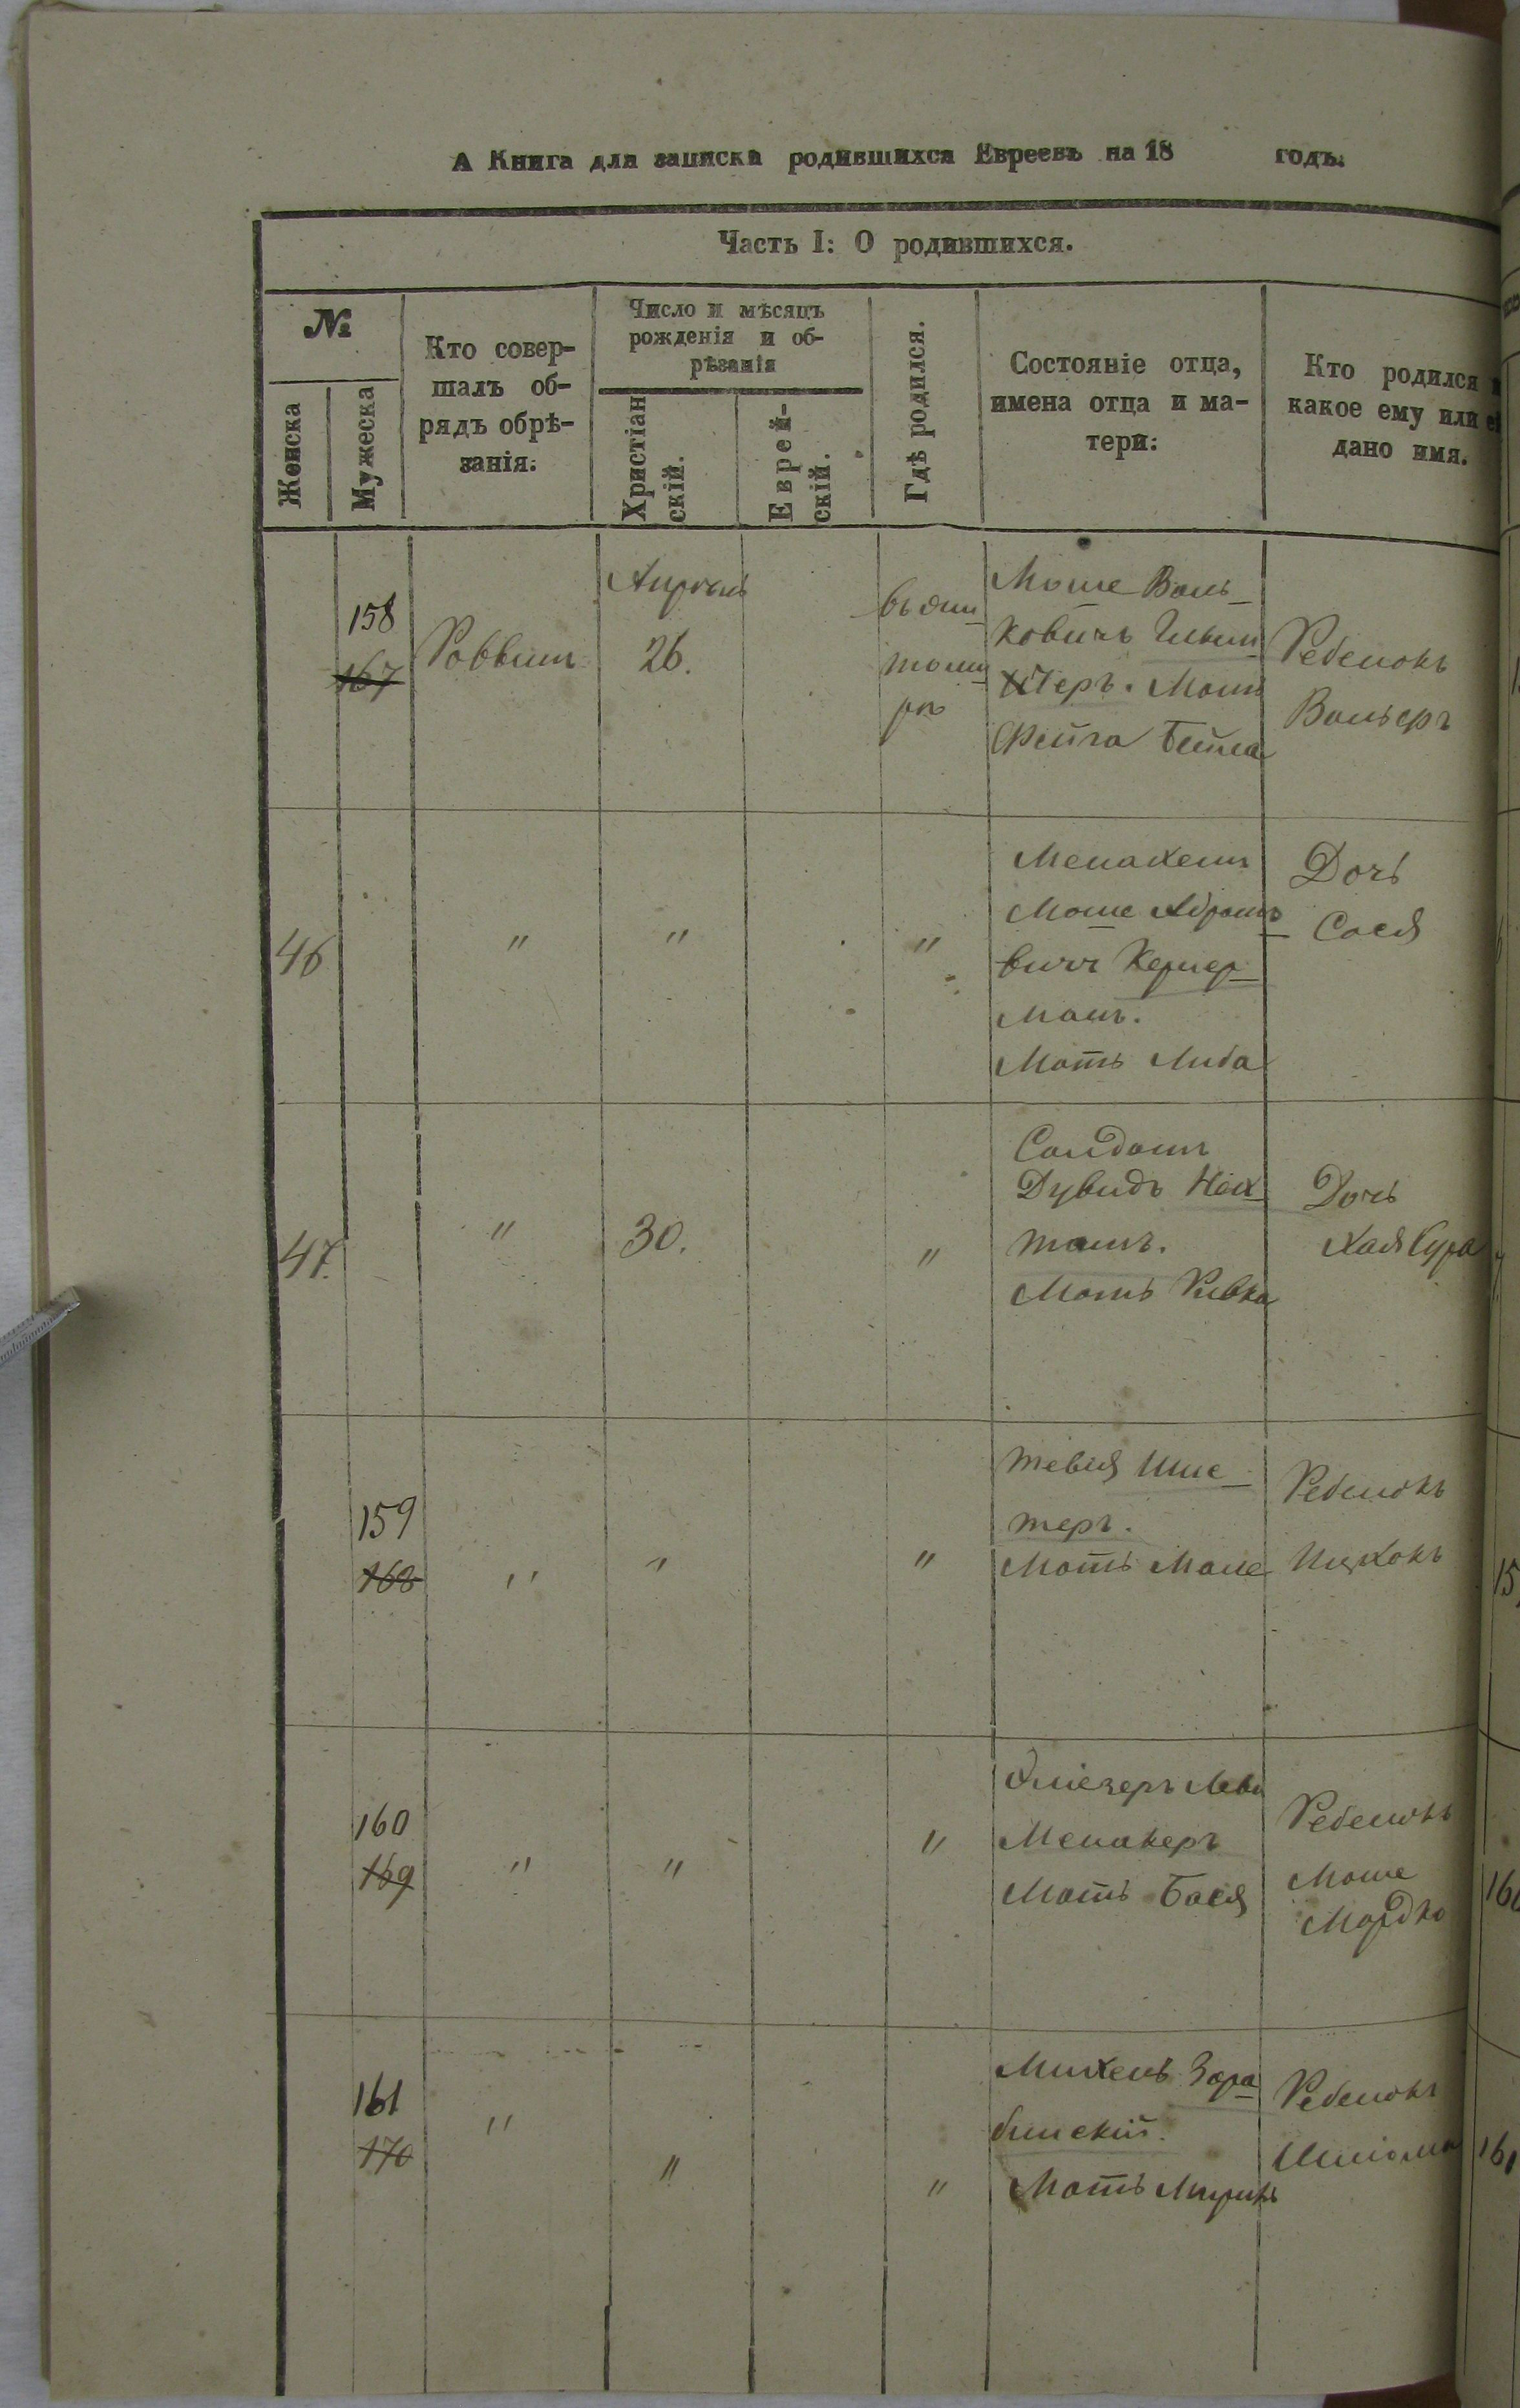 А Книга для записка родившихся Евреевъ на 18 годъ.
Часть I: О родившихся.
№
Женска
Мужеска
Кто совер-
шалъ об-
рядъ обрѣ-
занія:
Число и мѣсяцъ
рожденія и об-
рѣзанія
Христіан
скій.
Еврей-
скій.
Гдѣ родился.
Состояніе отца,
имена отца и ма-
тери:
Кто родился и
какое ему или ей
дано имя.
158
167
Раввинъ
Апрель
26.
въ Жи
томи
рѣ
Моше Воль
ковичъ
теръ. Мать
Фейга Бейла
Ребенокъ
Вольеръ
46
"
"
"
Менахемъ
Моше Абрамо
вичъ Кернер
манъ.
Мать Либа
Дочь
Сося
47.
"
30.
"
Солдатъ
Дувидъ Нах
манъ.
Мать Ривка
Дочь
Хая Сура
159
168
"
"
"
Тевія Шне
теръ.
Мать Мале
Ребенокъ
Ицхокъ
160
169
"
"
"
Эліезеръ Леви
Менакеръ
Мать Бася
Ребенокъ
Моше
Мордко
161
170
"
"
"
Михель Зара
бинскій.
Мать
Ребенокъ
Шліома